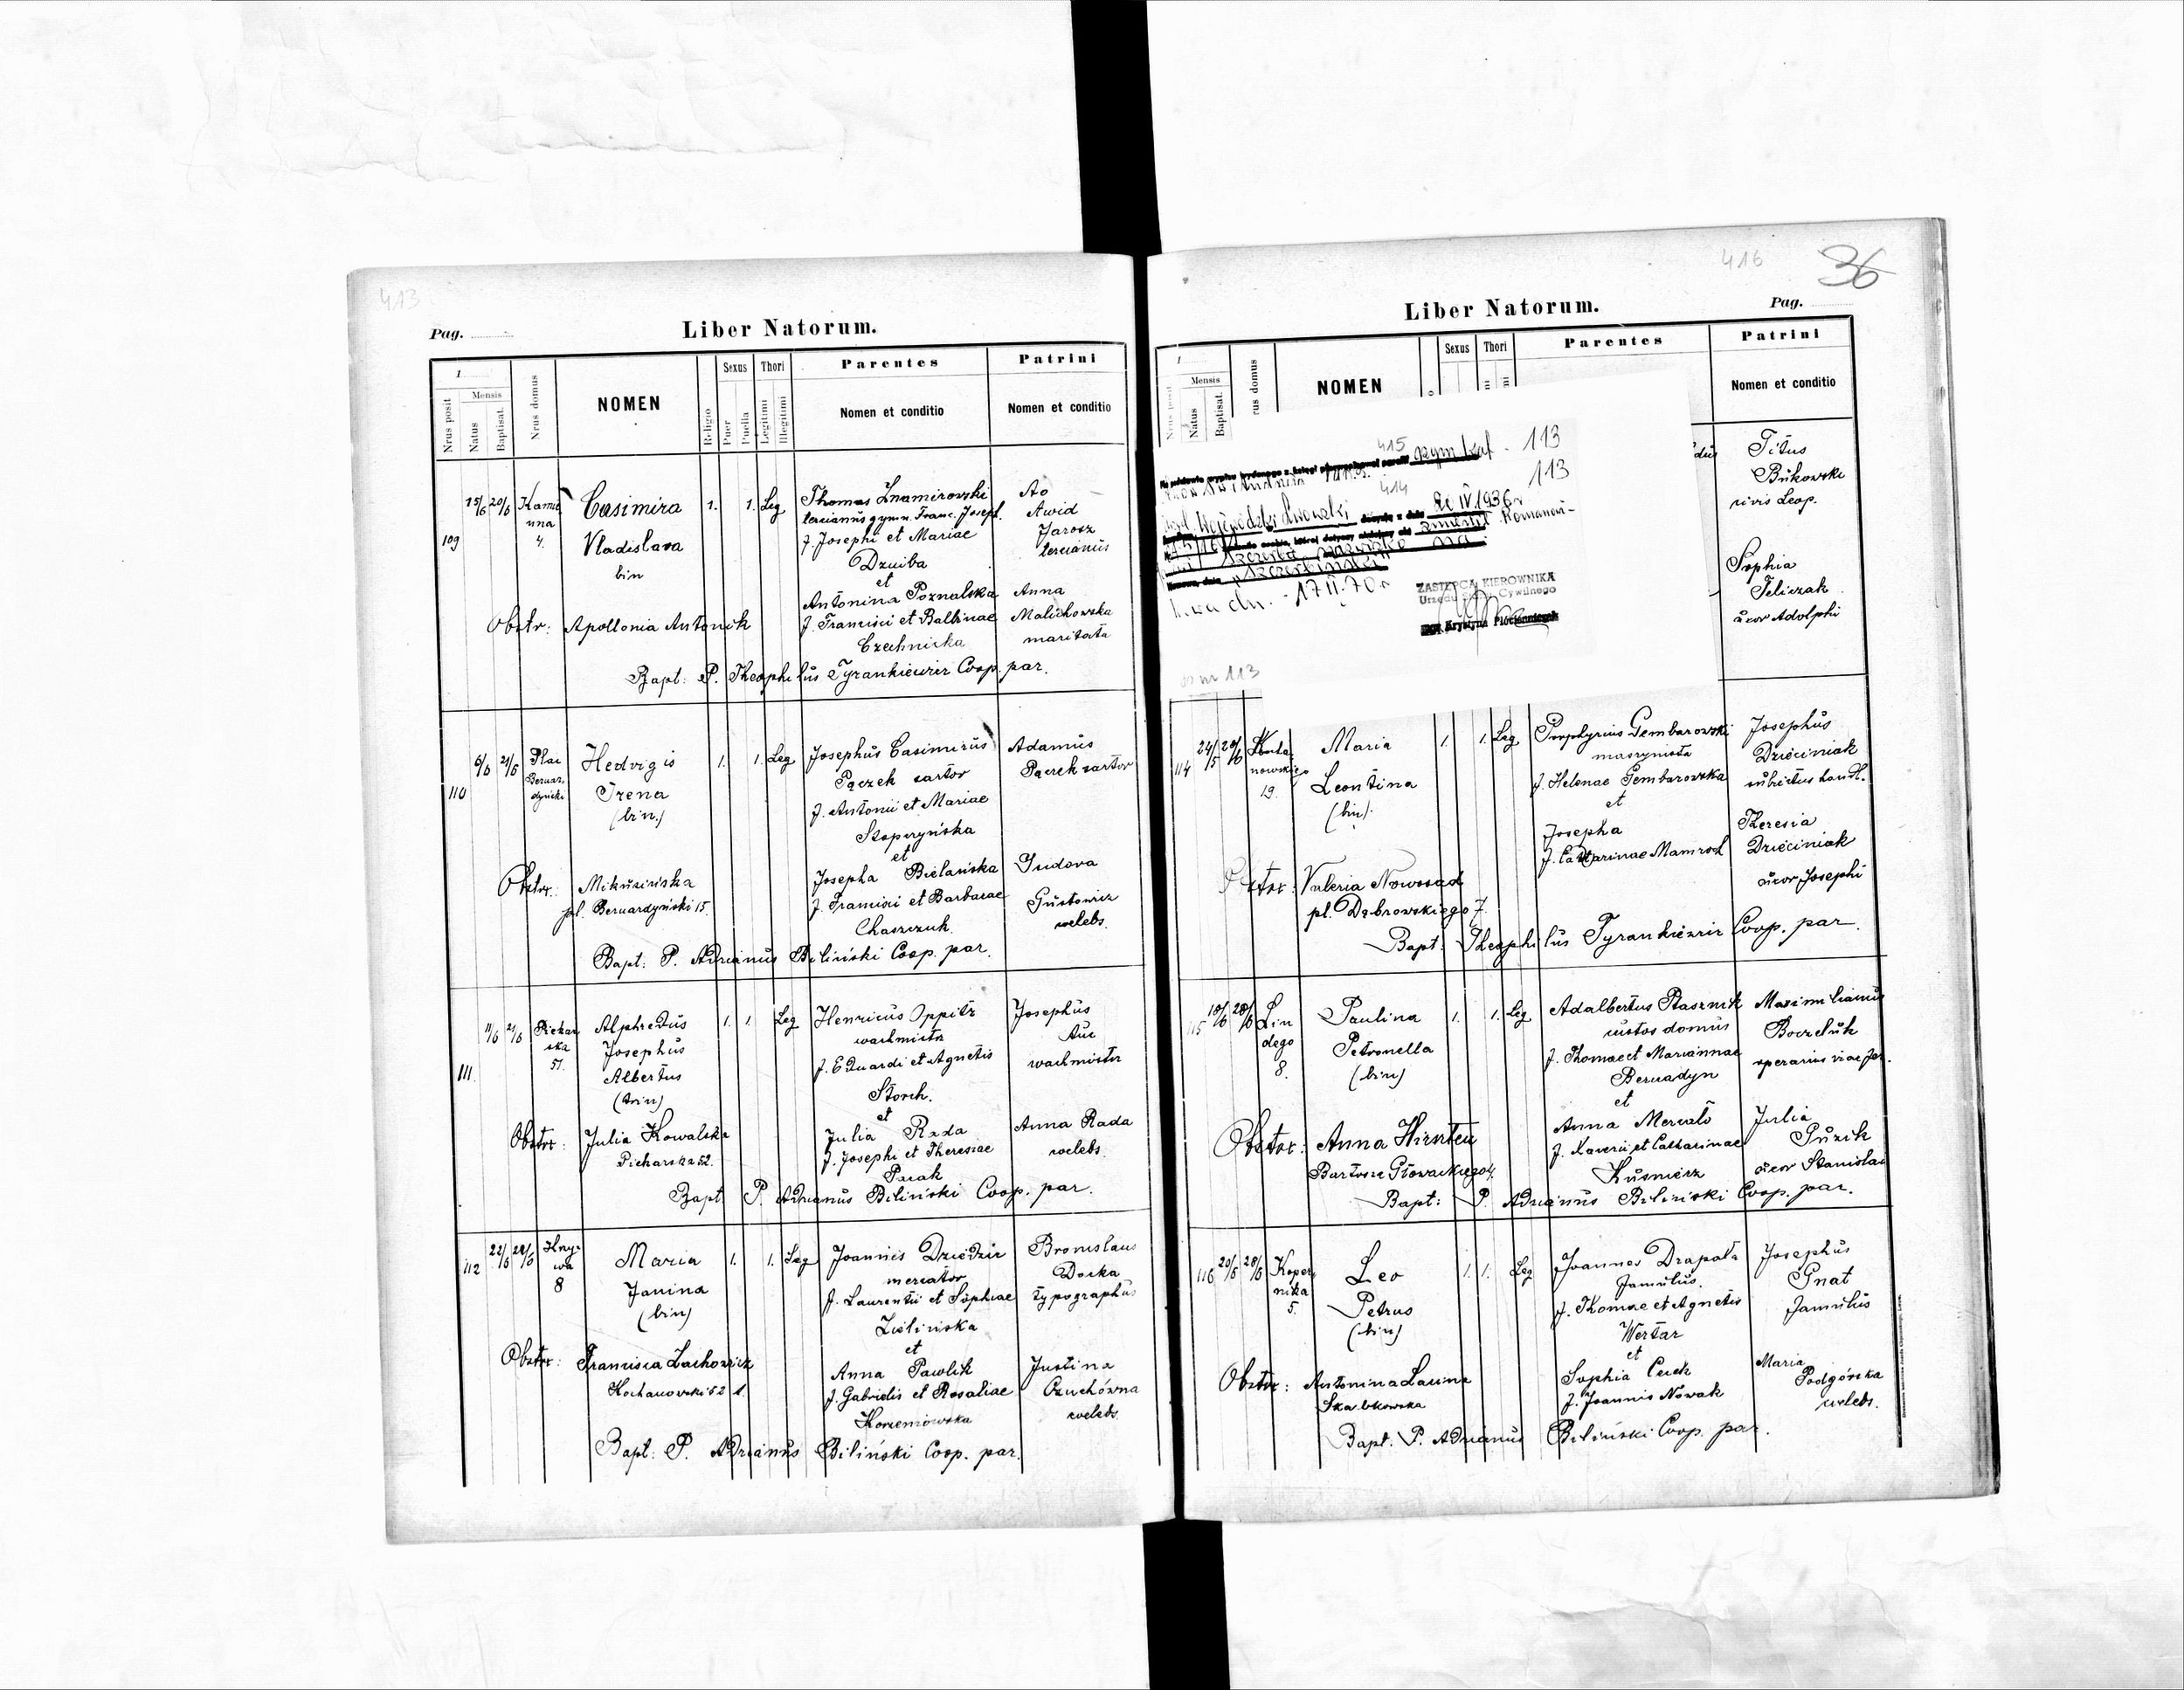 413
Pag.
Liber Natorum.
1
Mensis
Nrus posit
Natus
Baptisat.
Nrus domus
NOMEN
Religio
Sexus
Puer
Puella
Thori
Legitimi
Illegitimi
Parentes
Nomen et conditio
Patrini
Nomen et conditio
109
15/6 20/6
Kamie
nna
4.
Casimira
Vladislava
bin
1. 1. Leg
Thomas Znamirovski
tercianus gymn. Franc. Joseph.
f. Josephi et Mariae
Dzuiba
et
Antonina Poznalska
f. Francisci et Balbinae
Czechnicka
Awid
Jarosz
tercianus
Anna
Malichowska
maritata
Obstr: Apollonia Antonik
Bapt: P. Theophilus Tyrankiewicz Coop. par.
110
6/6 21/6
Plac
Bernar
dyński
Hedvigis
Irena
(bin.)
1. 1. Leg
Josephus Casimirus
Pączek sartor
f. Antonii et Mariae
Stopczyńska
et
Josepha Bielańska
f. Francisci et Barbarae
Chaszczuk.
Adamus
Pączek sartor
Isidora
Gustowicz
coelebs.
Obstr: Mikusińska
pl. Bernardyński 15.
Bapt: P. Adrianus Biliński Coop. par.
111.
11/6 21/6
Piekar
ska
51.
Alphredus
Josephus
Albertus
(trin)
1. 1. Leg
Henricus Oppitz
wachmistr
f. Eduardi et Agnetis
Storch.
et
Julia Rada
f. Josephi et Theresiae
Pacak
Josephus
Auc
wachmistr
Anna Rada
coelebs.
Obstr: Julia Kowalska
Piekarska 52.
Bapt P. Adrianus Biliński Coop. par.
112
22/6 28/6
8
Maria
Janina
(bin)
1. 1. Leg
Joannes Dziedzic
mercator
f. Laurentii et Sophiae
Zielińska
et
Anna Pawlik
f. Gabrielis et Rosaliae
Korzeniowska
Bronislaus
Docka
typographus
Justina
Czuchówna
coelebs.
Obstr: Francisca Lachowicz
Kochanowski 52
Bapt: P. Adrianus Biliński Coop. par.
416
36
Liber Natorum.
Pag.
1
Mensis
Natus
Baptisat.
rus domus
NOMEN
Sexus
Thori
Parentes
Patrini
Nomen et conditio
415
113
414
113
20 IV 1936 r
17 II. 70 r
ZASTĘPCA KIEROWNIKA
Urzędu Stanu Cywilnego
nr 113
Titus
Bukowski
civis Leop.
Sophia
Teliczak
uxor Adolphi
114
24/5 28/6
19.
Maria
Leontina
(bin).
1. 1. Leg
Porphyrius Gembarowski
maszynista
f. Helenae Gembarowska
et
Josepha
f. Catharinae Mamroch
Josephus
Dzieciniak
Theresia
Dzieciniak
uxor Josephi
Obstr: Valeria Nowosad
pl. Dąbrowskiego 7.
Bapt: Theophilus Tyrankiewicz Coop. par.
115
18/6 28/6
Lin
dego
8.
Paulina
Petronella
(bin)
1. 1. Leg
Adalbertus Ptasznik
custos domus
f. Thomae et Mariannae
Bernadyn
et
Anna Mercalo
f. Xaverii et Catharinae
Kusnierz
Maximilianus
Boczeluk
operarius viae fer.
Julia
Guzik
uxor Stanislai
Obstr: Anna Hirsten
Bartosza Głowackiego
Bapt: P. Adrianus Biliński Coop. par.
116
20/6 28/6
Koper
nika
5.
Leo
Petrus
(bin)
1. 1. Leg
Joannes Drapała
famulus.
f. Thomae et Agnetis
Wertar
et
Sophia Cuck
f. Joannis Nowak
Josephus
Gnat
famulus
Maria
Podgórska
coelebs.
Obstr: Antonina Lacina
Bapt: P. Adrianus Biliński Coop. par.